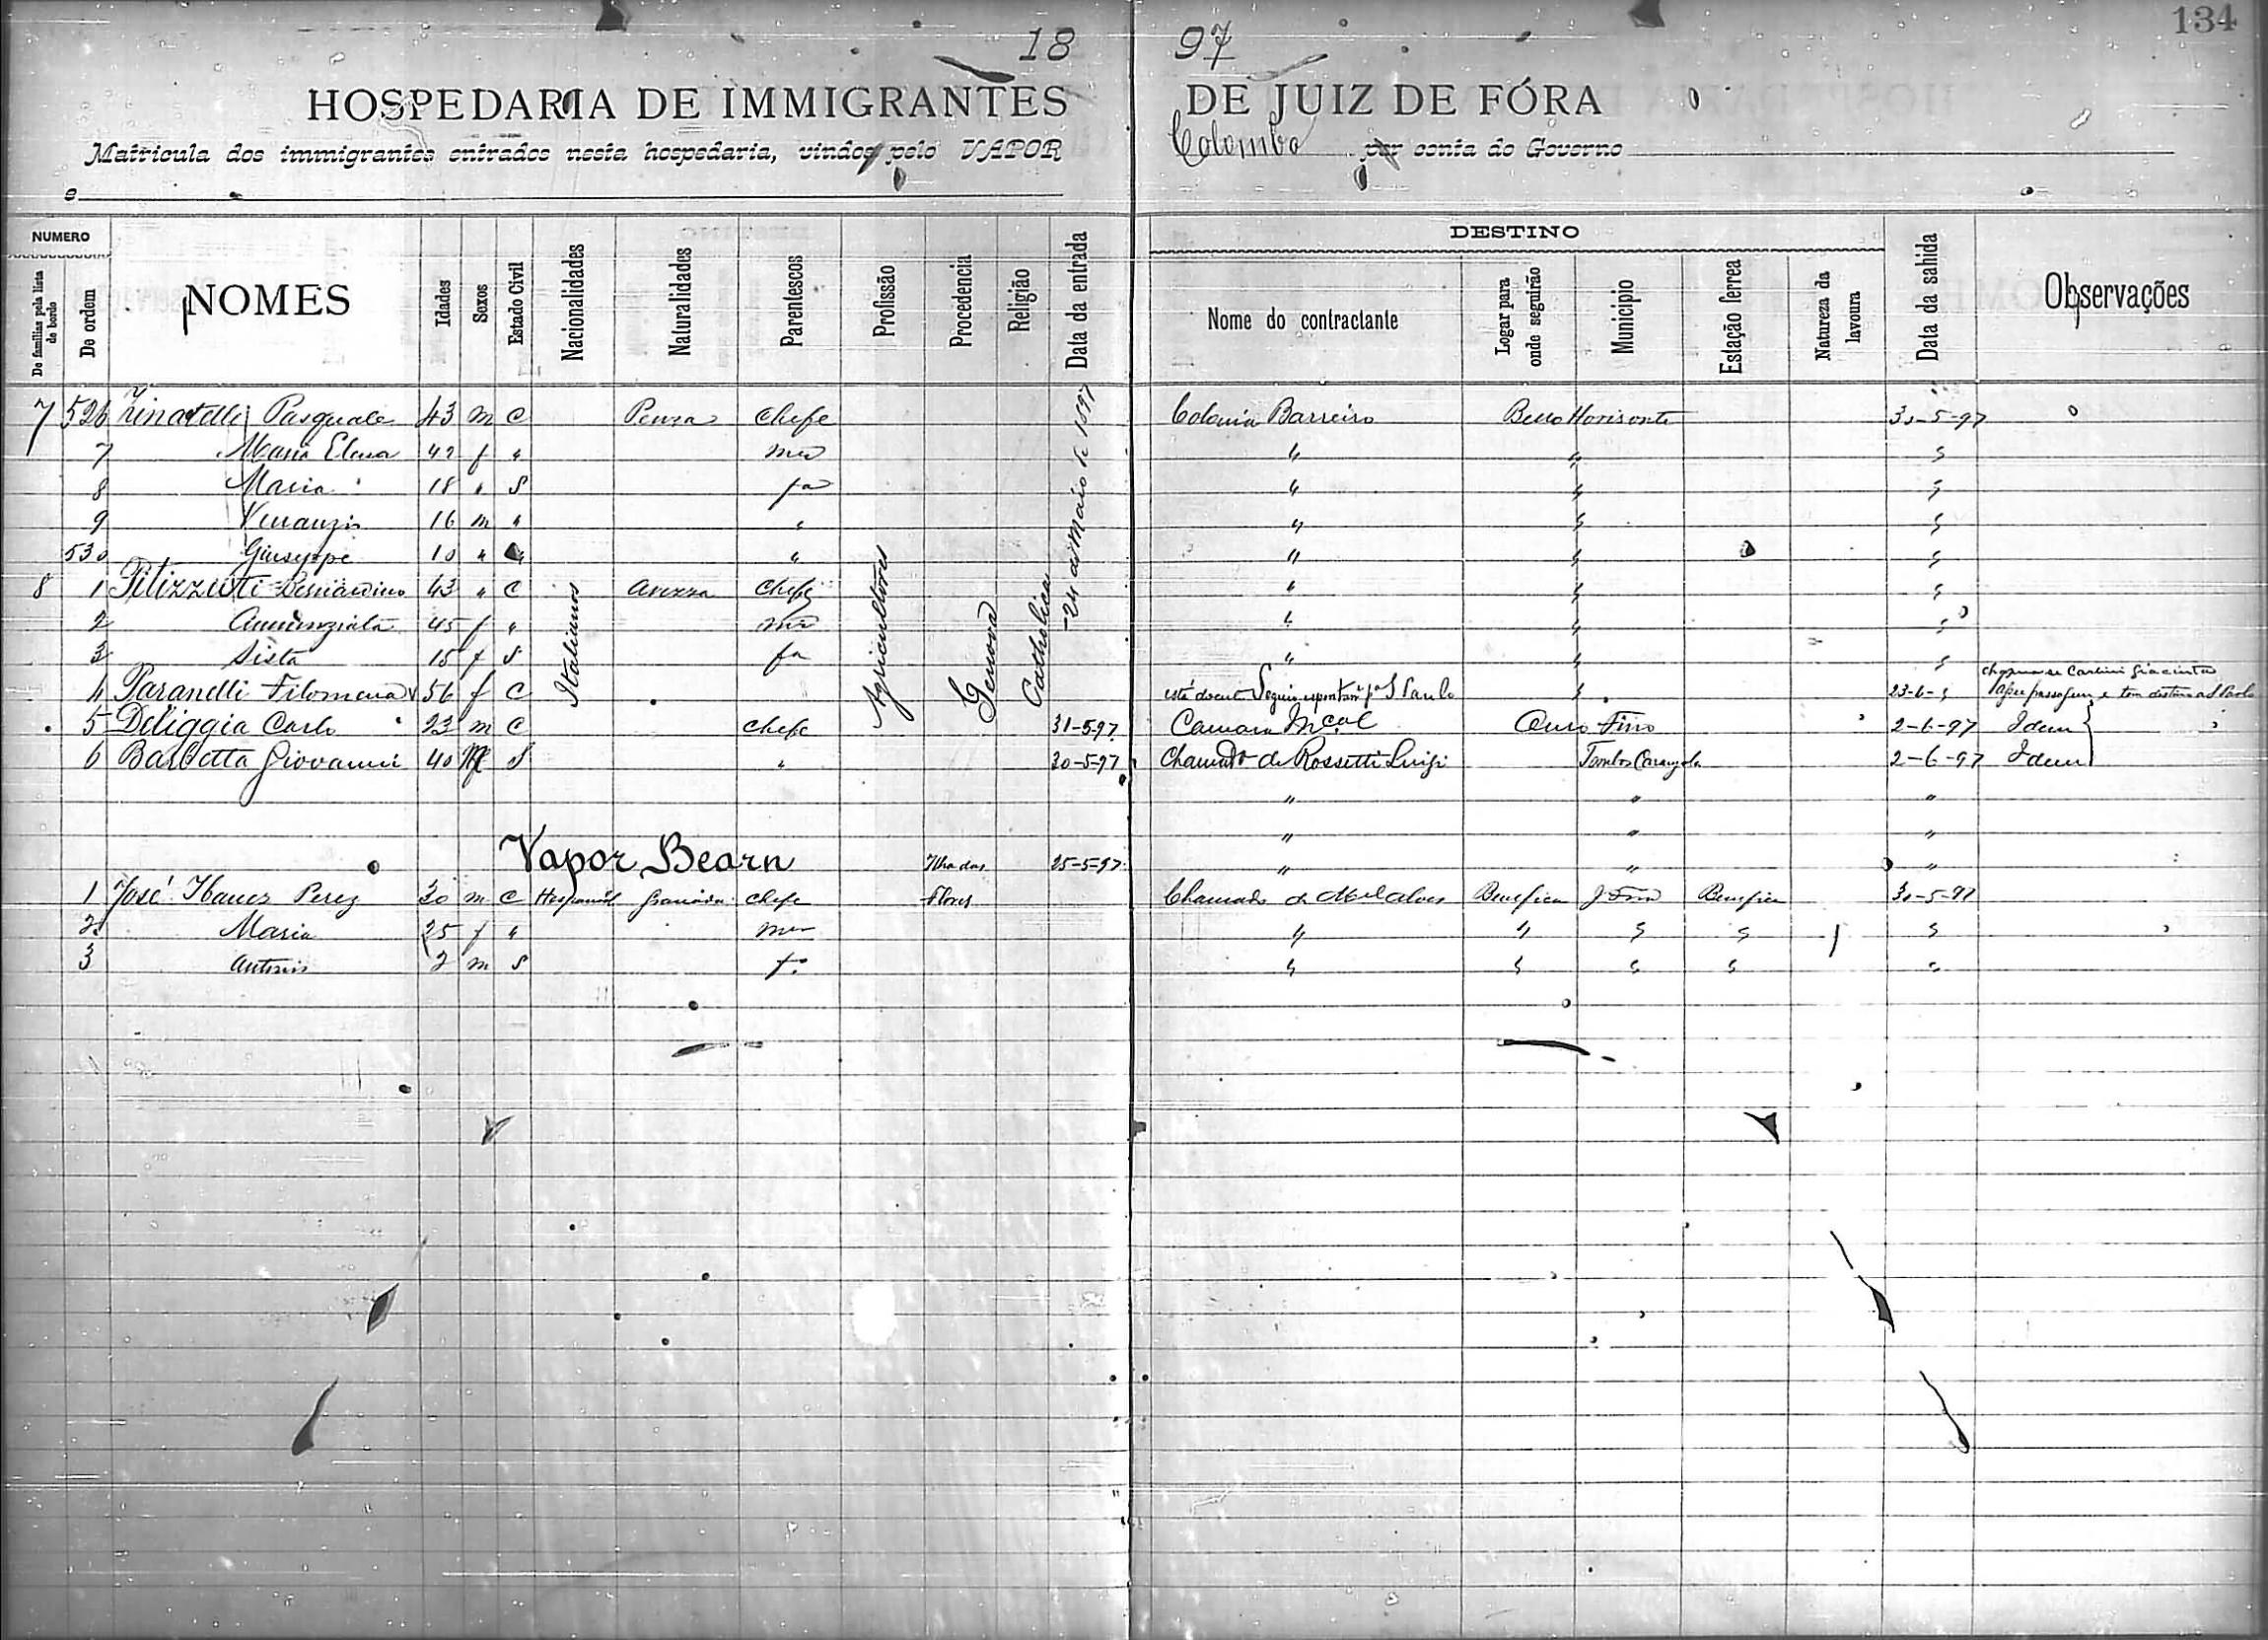 134
18 97
HOSPEDARIA DE IMMIGRANTES DE JUIZ DE FÓRA
Matricula dos immigrantes entrados nesta hospedaria, vindos pelo VAPOR Colombo por conta do Governo
e
NUMERO
De familias pela lista de bordo
De ordem
NOMES
Idades
Sexos
Estado Civil
Nacionalidades
Naturalidades
Parentescos
Profissão
Procedencia
Religião
Data da entrada
DESTINO
Nome do contractante
Logar para onde seguirão
Municipio
Estação ferrea
Natureza da lavoura
Data da sahida
Observações
7 526 Pasquale 43 m C Chefe Colonia Barreiro Bello Horisonte 30-5-97
7 Maria Elena 42 f " mer " " "
8 Maria 18 " S fa " " "
9 16 m " " " " "
530 Giuseppe 10 " " " " " "
8 1 Pilizzuti Bernardino 43 " C Chefe " " "
2 Annunziata 45 f " mer " " "
3 Sista 15 f S fa " " "
4 Paranelli Filomena 56 f C está doente Seguiu p.a S Paulo " 23-6-"
5 Deliggia Carlo 23 m C Chefe 31-5-97 Camara Mcal Ouro Fino 2-6-97 Idem
6 Barbetta Giovanni 40 M S " 30-5-97 Chamado de Rossetti Luigi Tombos Carangola 2-6-97 Idem
Italianos
Agricultores
Genova
Catholica
24 de Maio de 1897
" " "
" " "
Vapor Bearn Ilha das 25-5-97 " " "
1 José Ibanez Perez 30 m C Hespanhol Granada Chefe Flores Chamado de Mel Alves Benefica J Fora Benefica 30-5-97
2 Maria 25 f " mer " " " " "
3 Antonio 2 m S fo " " " " "